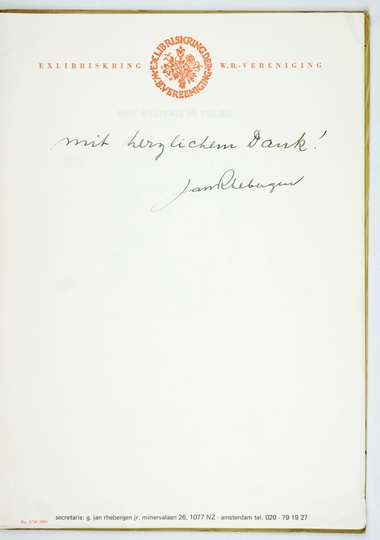 EXLIBRISKRING W.B.-VERENIGING
EXLIBRISKRING DER W.B. VEREENIGING
mit herzlichem Dank!
Jan Rhebergen
secretaris: g. jan rhebergen jr. minervalaan 26, 1077 NZ - amsterdam tel. 020 - 79 19 27